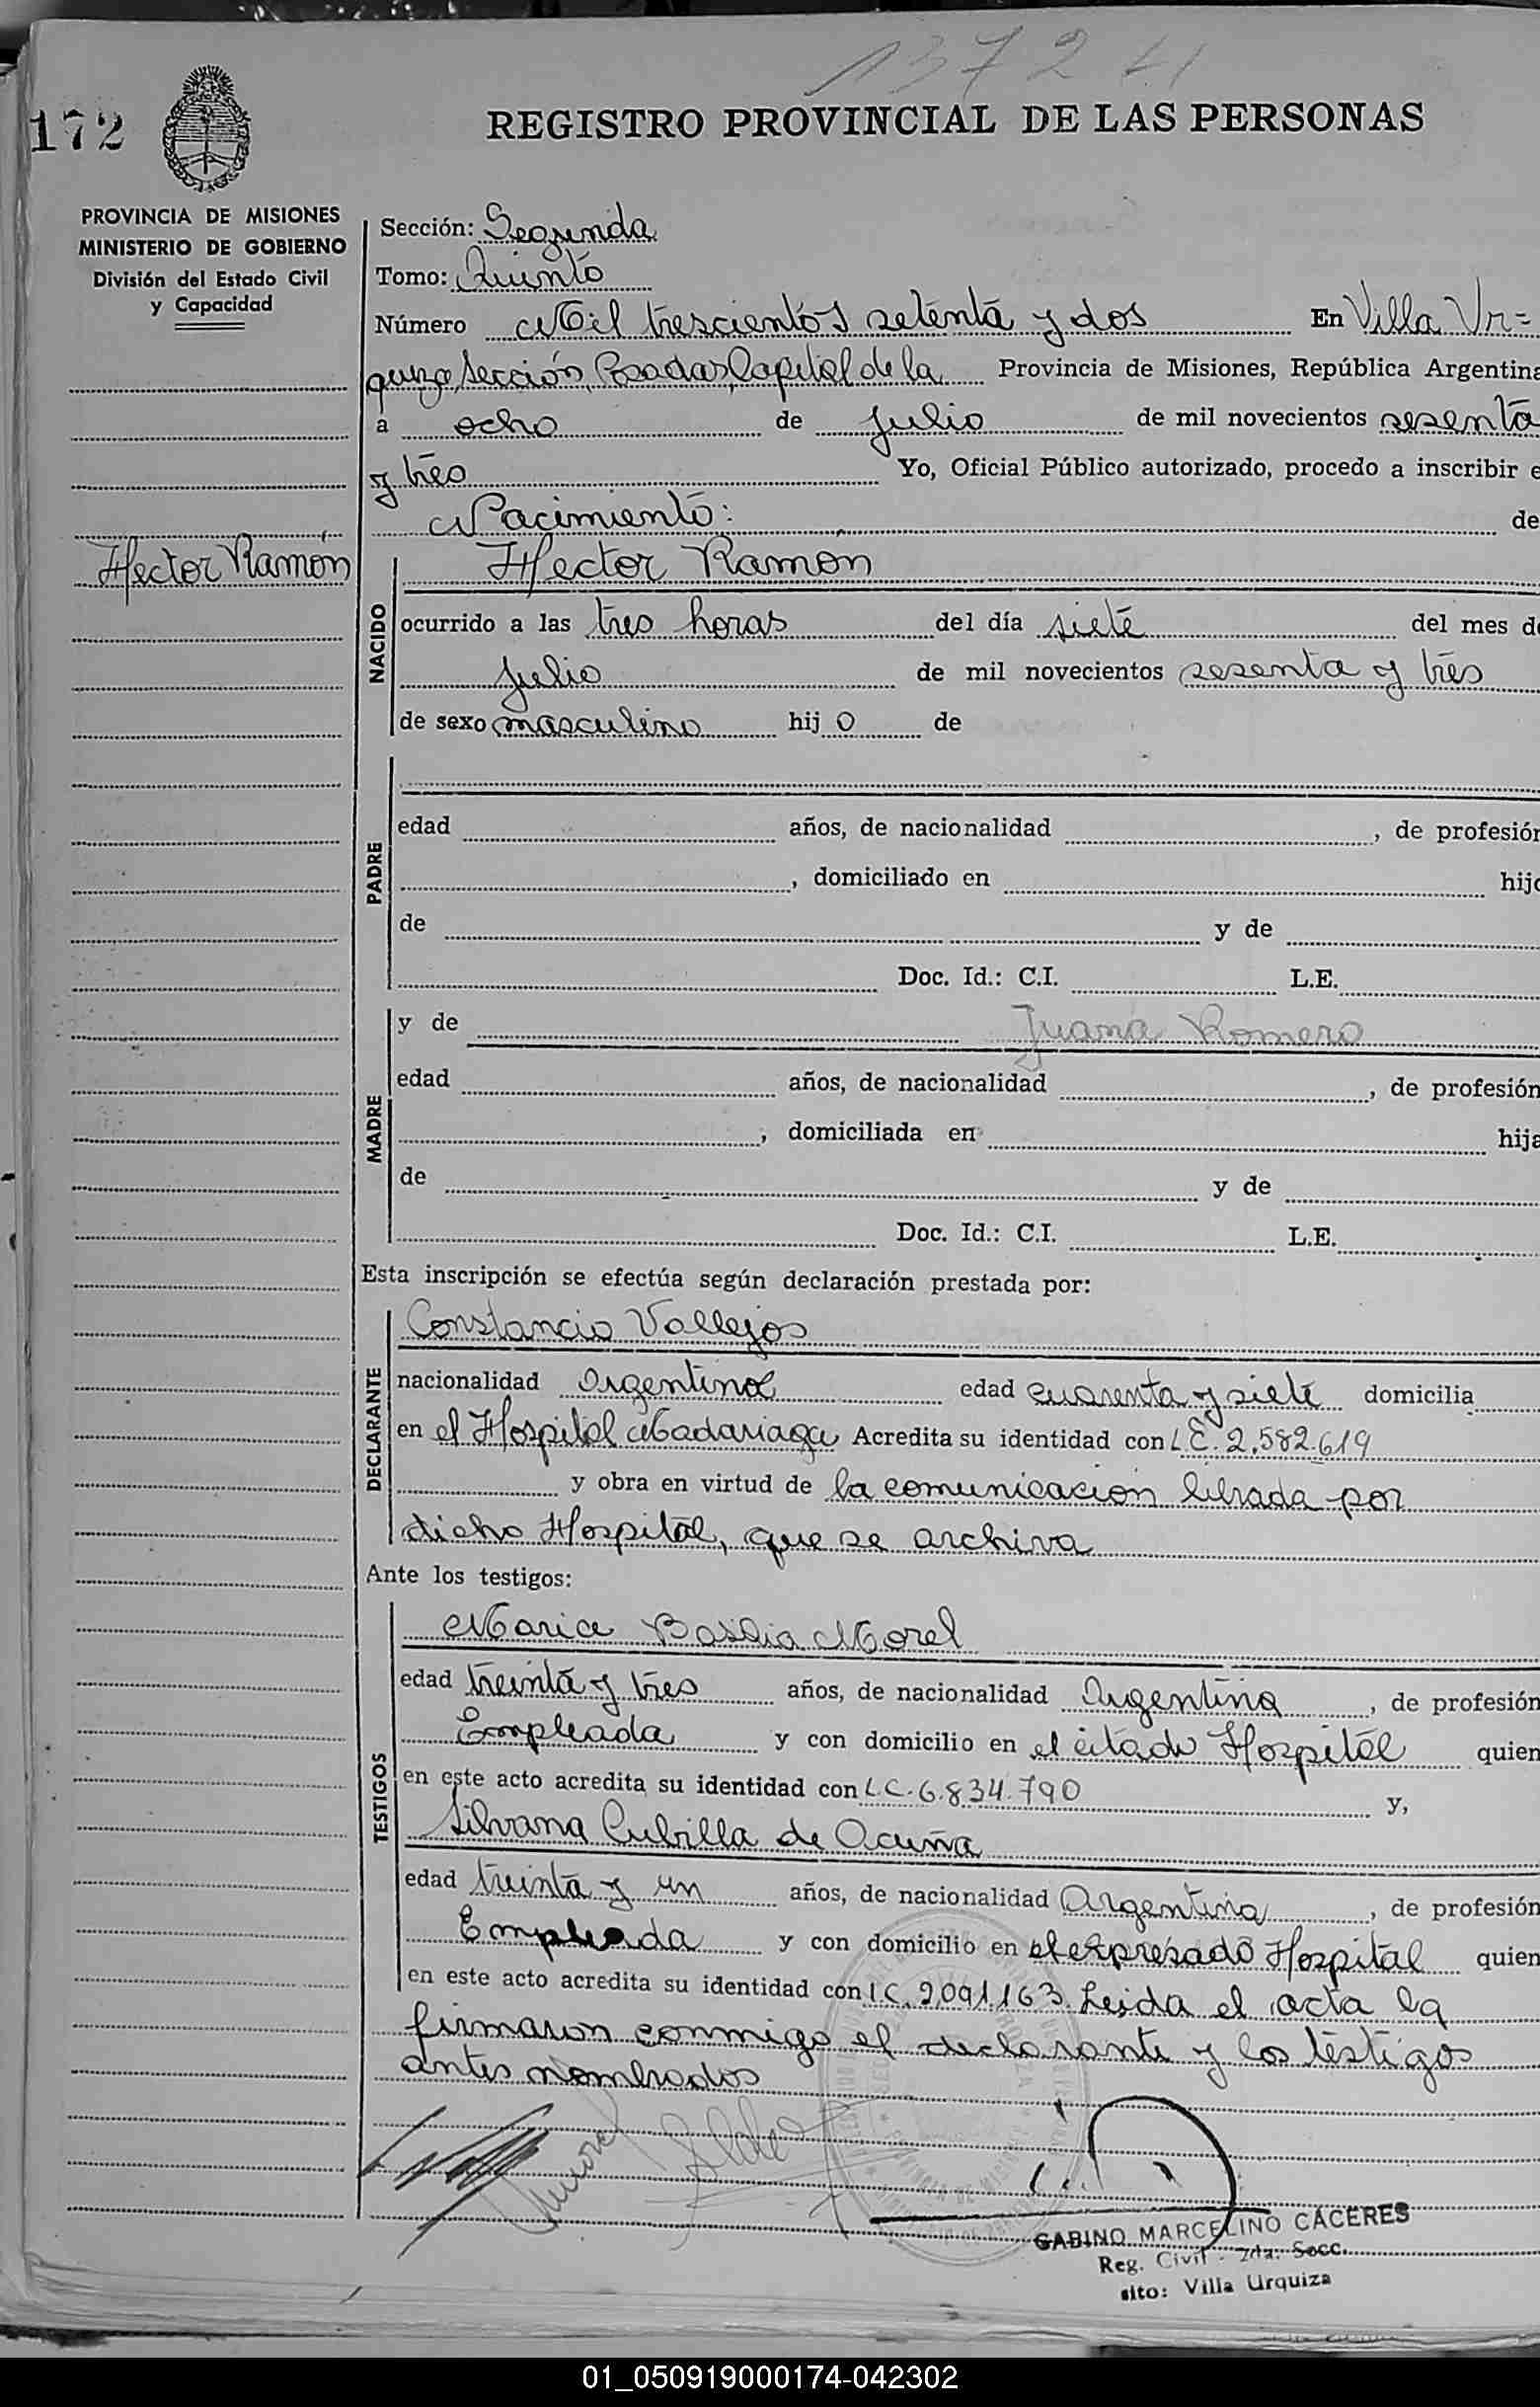 1372 H
172
REGISTRO PROVINCIAL DE LAS PERSONAS
PROVINCIA DE MISIONES
MINISTERIO DE GOBIERNO
División del Estado Civil
y Capacidad
Sección: Segunda
Tomo: Quinto
Número Mil trescientos setenta y dos En Villa Ur=
quiza, sección, Posadas, Capital de la Provincia de Misiones, República Argentina
a ocho de julio de mil novecientos sesenta
y tres Yo, Oficial Público autorizado, procedo a inscribir e
Nacimiento: de
Hector Ramón
NACIDO
Hector Ramon
ocurrido a las tres horas del día siete del mes de
julio de mil novecientos sesenta y tres
de sexo masculino hij o de
PADRE
edad años, de nacionalidad , de profesión
, domiciliado en hijo
de y de
Doc. Id.: C.I. L.E.
MADRE
y de Juana Romero
edad años, de nacionalidad , de profesión
, domiciliada en hija
de y de
Doc. Id.: C.I. L.E.
Esta inscripción se efectúa según declaración prestada por:
DECLARANTE
Constancio Vallejos
nacionalidad argentina edad cuarenta y siete domicilia
en el Hospital Madariaga Acredita su identidad con L.E. 2.582.619
y obra en virtud de la comunicación librada por
dicho Hospital, que se archiva
Ante los testigos:
TESTIGOS
Maria Basilia Morel
edad treinta y tres años, de nacionalidad Argentina , de profesión
Empleada y con domicilio en el citado Hospital quien
en este acto acredita su identidad con L.C. 6.834.790 y,
Silvana Cubilla de Acuña
edad treinta y un años, de nacionalidad Argentina , de profesión
Empleada y con domicilio en el expresado Hospital quien
en este acto acredita su identidad con L.C. 2.091.163. Leida el acta la
firmaron conmigo el declarante y los testigos
antes nombrados
GABINO MARCELINO CACERES
Reg. Civil - 2da. Secc.
sito: Villa Urquiza
01_050919000174-042302